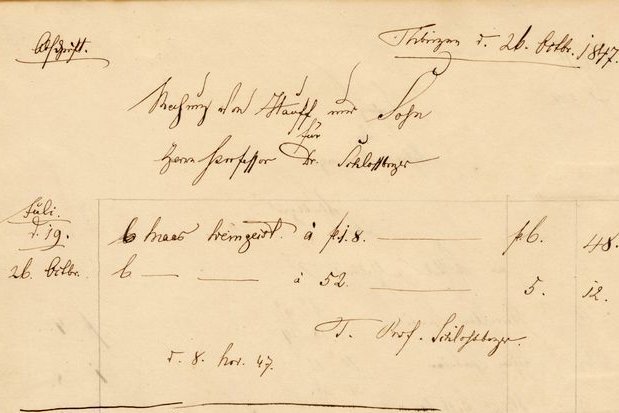 Abschrift.
Tübingen d. 26. Octbr. 1847.
Rechnung von Hauff und Sohn
für
Herrn Professor Dr. Schlossberger
Juli.
d. 19. 6 Maas Weingeist. à f 1. 8. f 6. 48.
26. Octbr. 6 — — à 52. 5. 12.
T. Prof. Schlossberger.
d. 8. Nov. 47.